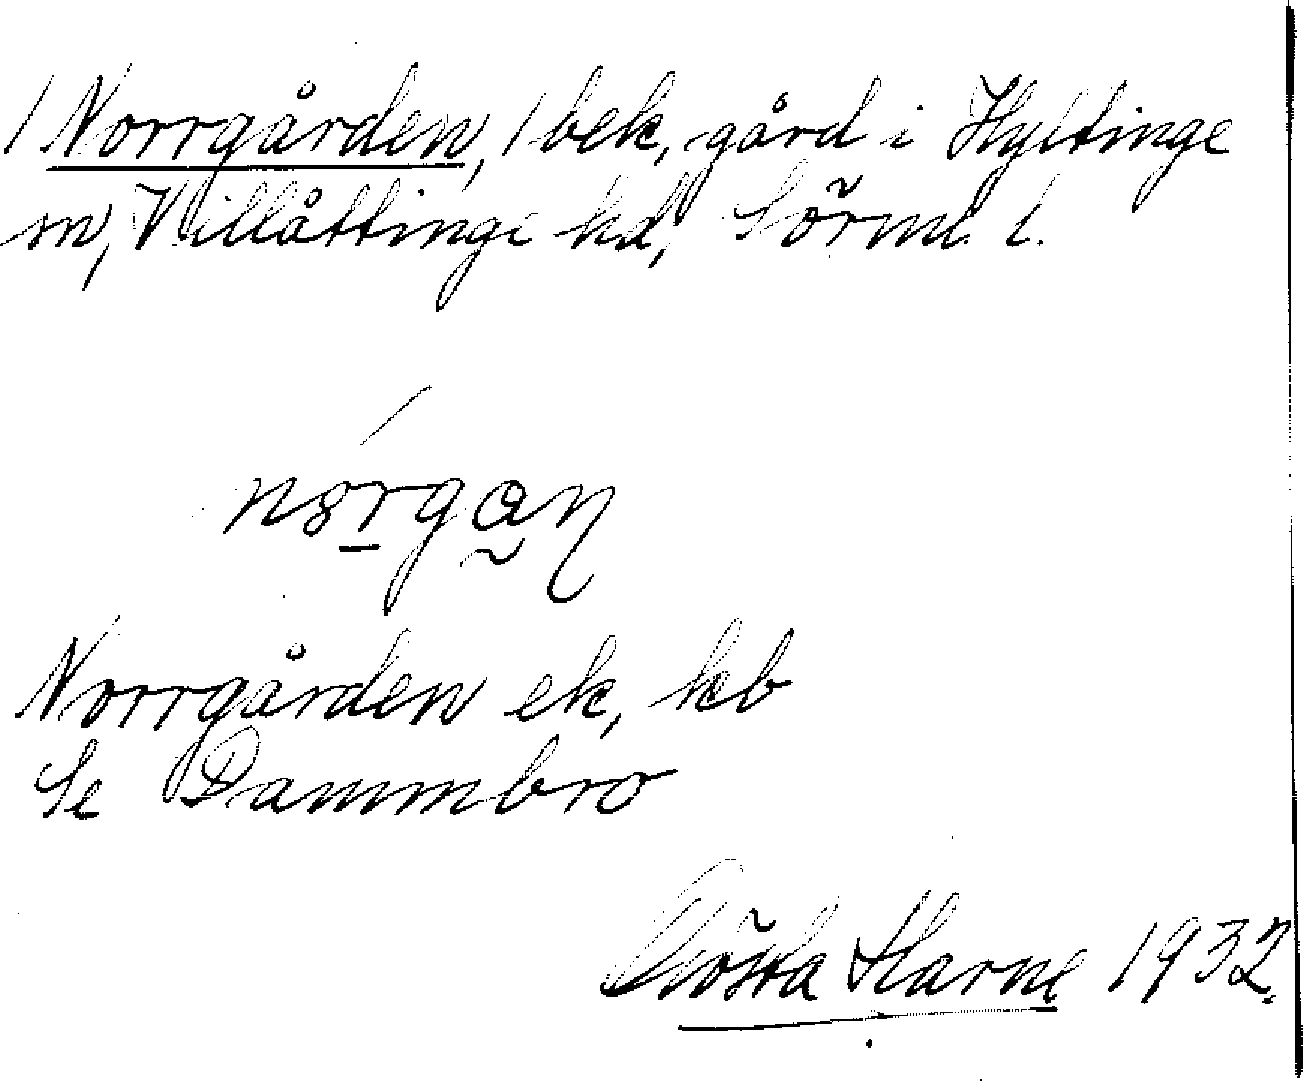 /Norrgården,/ bek, gård i Hyltinge
sn, Villåttinge hd, Sörml. l.
Norrgården ek, kb
Se Dammbro
Gösta Harne 1932.